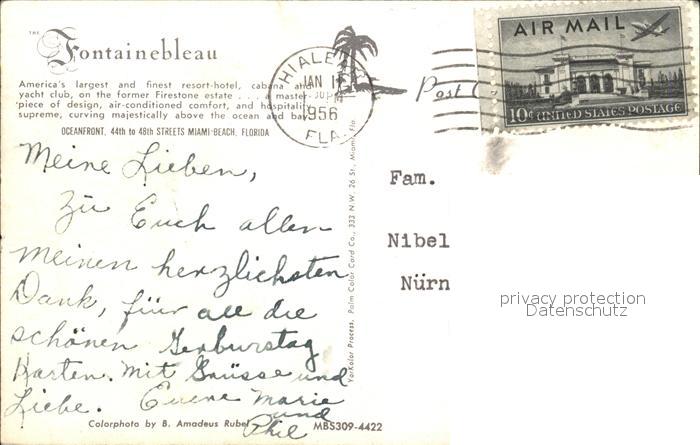 THE
Fontainebleau
America's largest and finest resort-hotel, cabana and
yacht club, on the former Firestone estate . . . a master-
piece of design, air-conditioned comfort, and hospitality
supreme, curving majestically above the ocean and bay.
OCEANFRONT, 44th to 48th STREETS MIAMI-BEACH, FLORIDA
HIALEAH
JAN 1
PM
1956
FLA.
Post
AIR MAIL
10¢ UNITED STATES POSTAGE
Meine Lieben,
zu Euch allen
meinen herzlichsten
Dank, für all die
schönen Gerburstag
Karten. Mit Grüsse und
Liebe. Euere Marie
und
Phil
Colorphoto by B. Amadeus Rubel
MBS309-4422
YorKolor Process, Palm Color Card Co., 333 N.W. 26 St., Miami, Fla.
Fam.
Nibel
Nürn
privacy protection
Datenschutz